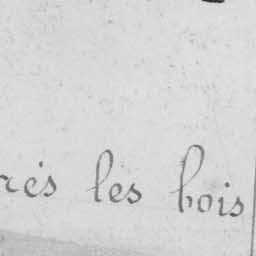 rés les bois